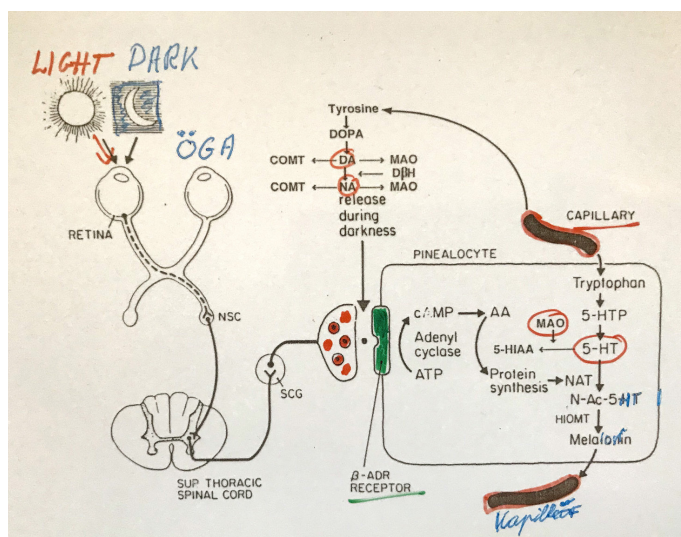 LIGHT DARK
ÖGA
RETINA
NSC
SCG
SUP THORACIC
SPINAL CORD
Tyrosine
DOPA
COMT DA MAO
DβH
COMT NA MAO
release
during
darkness
CAPILLARY
PINEALOCYTE
Tryptophan
5-HTP
MAO
5-HIAA 5-HT
cAMP AA
Adenyl
cyclase
ATP
Protein
synthesis
NAT
N-Ac-5-HT
HIOMT
Melatonin
β-ADR
RECEPTOR
Kapillär